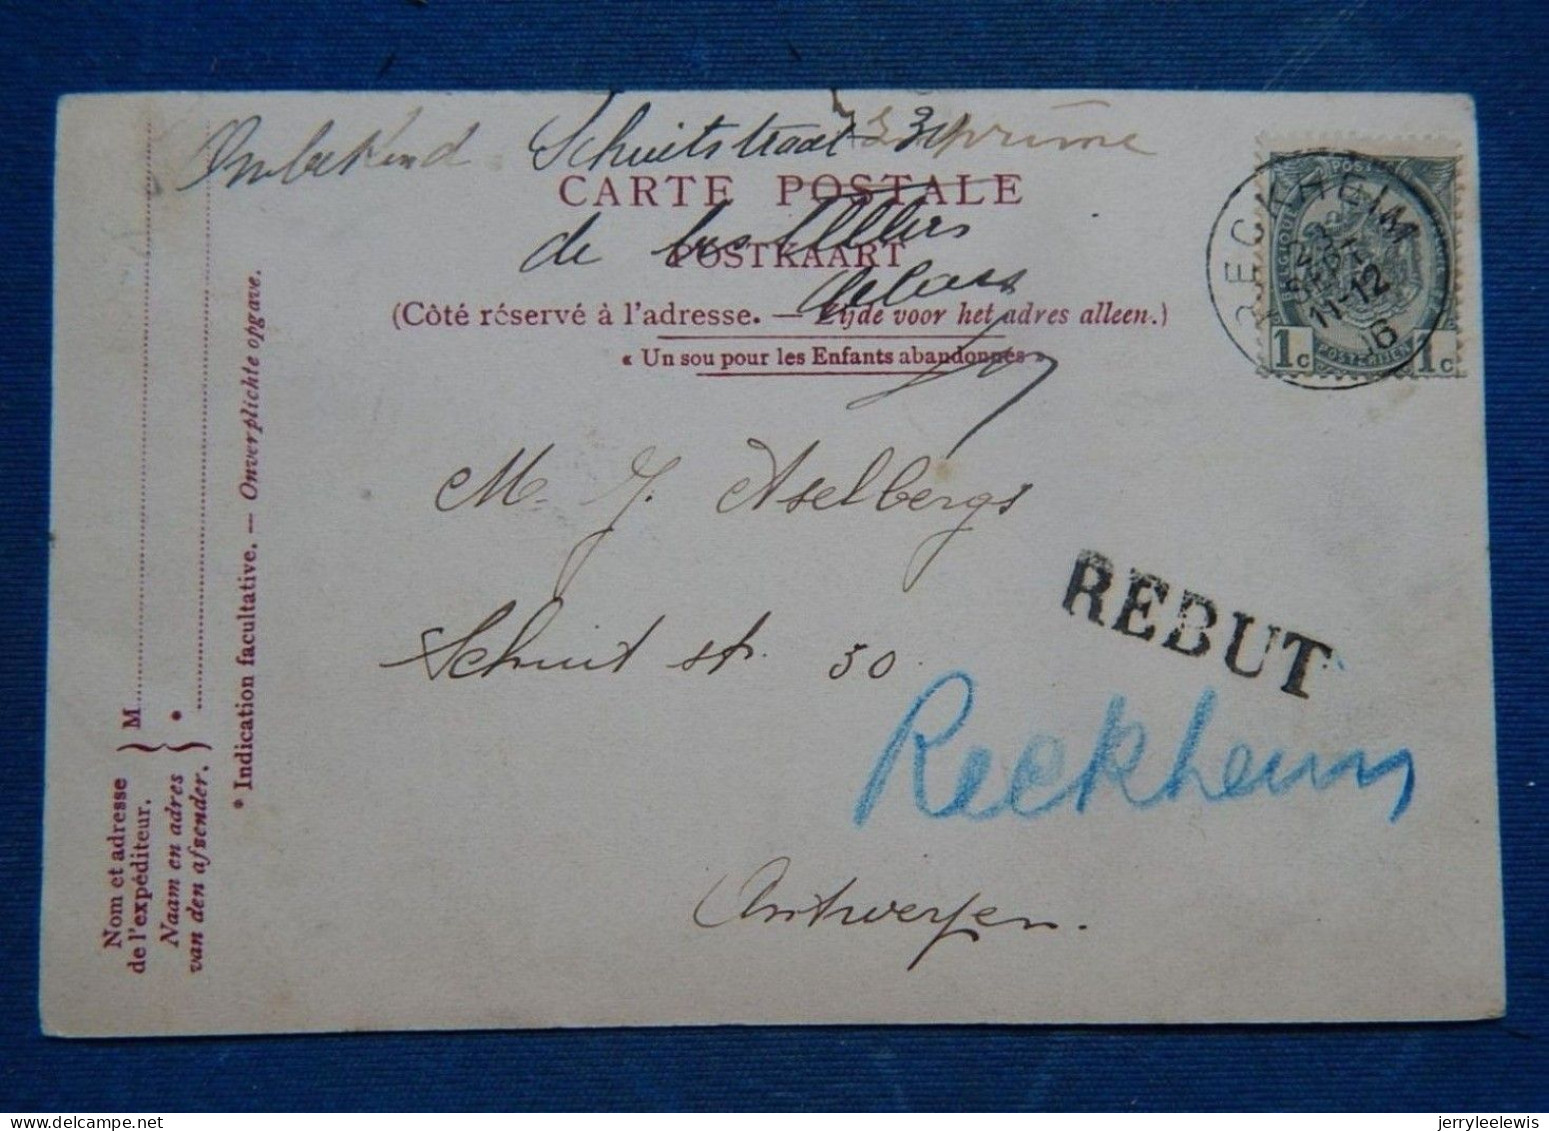 Onbekend Schuitstraat 30
CARTE POSTALE
de
POSTKAART
(Côté réservé à l'adresse. — Zijde voor het adres alleen.)
« Un sou pour les Enfants abandonnés »
RECKHEIM
11-12
1c 1c
M. J. Aselbergs
REBUT
Schuit str. 50.
Reckheim
Antwerpen.
Nom et adresse
de l'expéditeur.
M
Naam en adres
van den afzender.
*
* Indication facultative. — Onverplichte opgave.
jerryleelewis